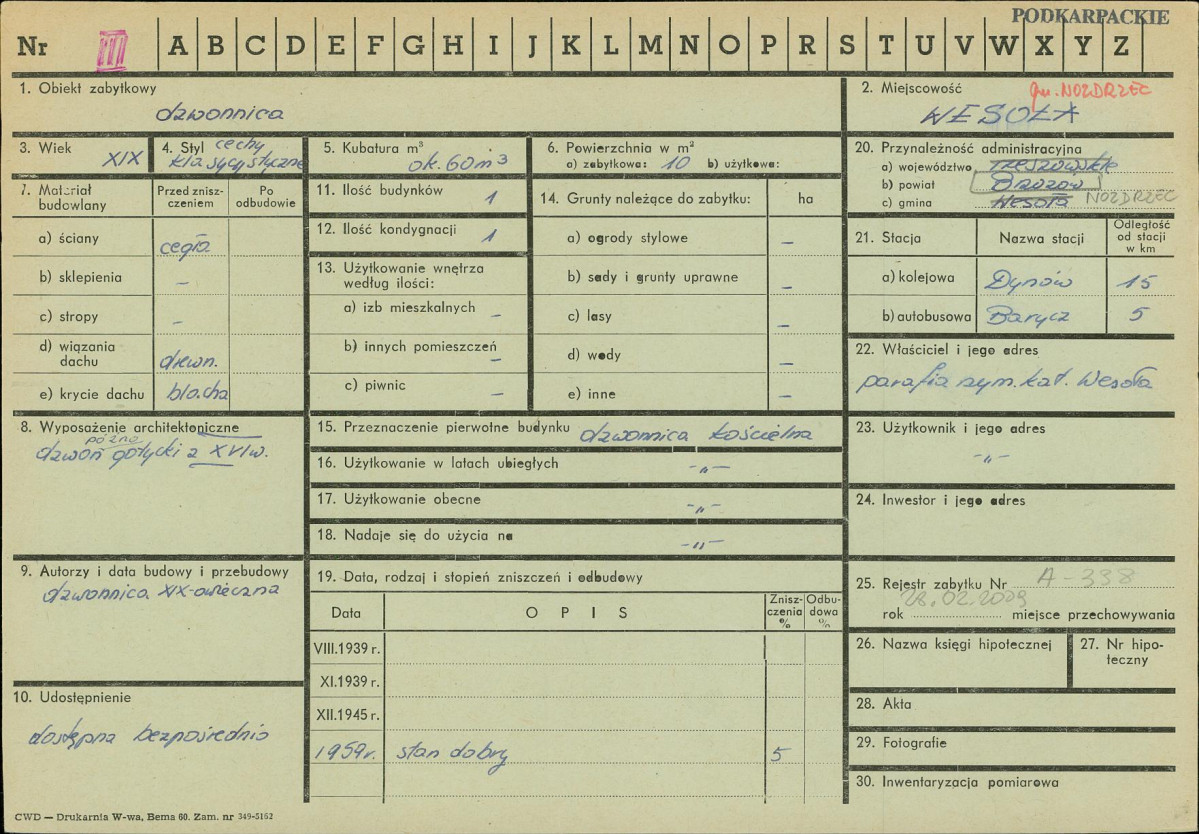 PODKARPACKIE
Nr III A B C D E F G H I J K L M N O P R S T U V W X Y Z
1. Obiekt zabytkowy
dzwonnica
2. Miejscowość
gm. NOZDRZEC
WESOŁA
3. Wiek
XIX
4. Styl cechy
klasycystyczne
5. Kubatura m³
ok. 60 m³
6. Powierzchnia w m²
a) zabytkowa: 10 b) użytkowa:
20. Przynależność administracyjna
a) województwo rzeszowskie
b) powiat Brzozów
c) gmina Wesoła NOZDRZEC
7. Materiał budowlany
Przed zniszczeniem
Po odbudowie
a) ściany cegła
b) sklepienia –
c) stropy –
d) wiązania dachu drewn.
e) krycie dachu blacha
11. Ilość budynków 1
12. Ilość kondygnacji 1
13. Użytkowanie wnętrza
według ilości:
a) izb mieszkalnych –
b) innych pomieszczeń –
c) piwnic –
14. Grunty należące do zabytku: ha
a) ogrody stylowe –
b) sady i grunty uprawne –
c) lasy –
d) wody –
e) inne –
21. Stacja
Nazwa stacji
Odległość od stacji w km
a) kolejowa Dynów 15
b) autobusowa Barycz 5
22. Właściciel i jego adres
parafia rzym. kat. Wesoła
8. Wyposażenie architektoniczne
późno
dzwon gotycki z XVI w.
15. Przeznaczenie pierwotne budynku dzwonnica kościelna
16. Użytkowanie w latach ubiegłych -„-
17. Użytkowanie obecne -„-
18. Nadaje się do użycia na -„-
23. Użytkownik i jego adres
-„-
24. Inwestor i jego adres
9. Autorzy i data budowy i przebudowy
dzwonnica XIX-owieczna
10. Udostępnienie
dostępna bezpośrednio
19. Data, rodzaj i stopień zniszczeń i odbudowy
Data
OPIS
Zniszczenia %
Odbudowa %
VIII.1939 r.
XI.1939 r.
XII.1945 r.
1959 r. stan dobry 5
25. Rejestr zabytku Nr A-338
28.02.2009
rok miejsce przechowywania
26. Nazwa księgi hipotecznej
27. Nr hipoteczny
28. Akta
29. Fotografie
30. Inwentaryzacja pomiarowa
CWD — Drukarnia W-wa, Bema 60. Zam. nr 349-5162